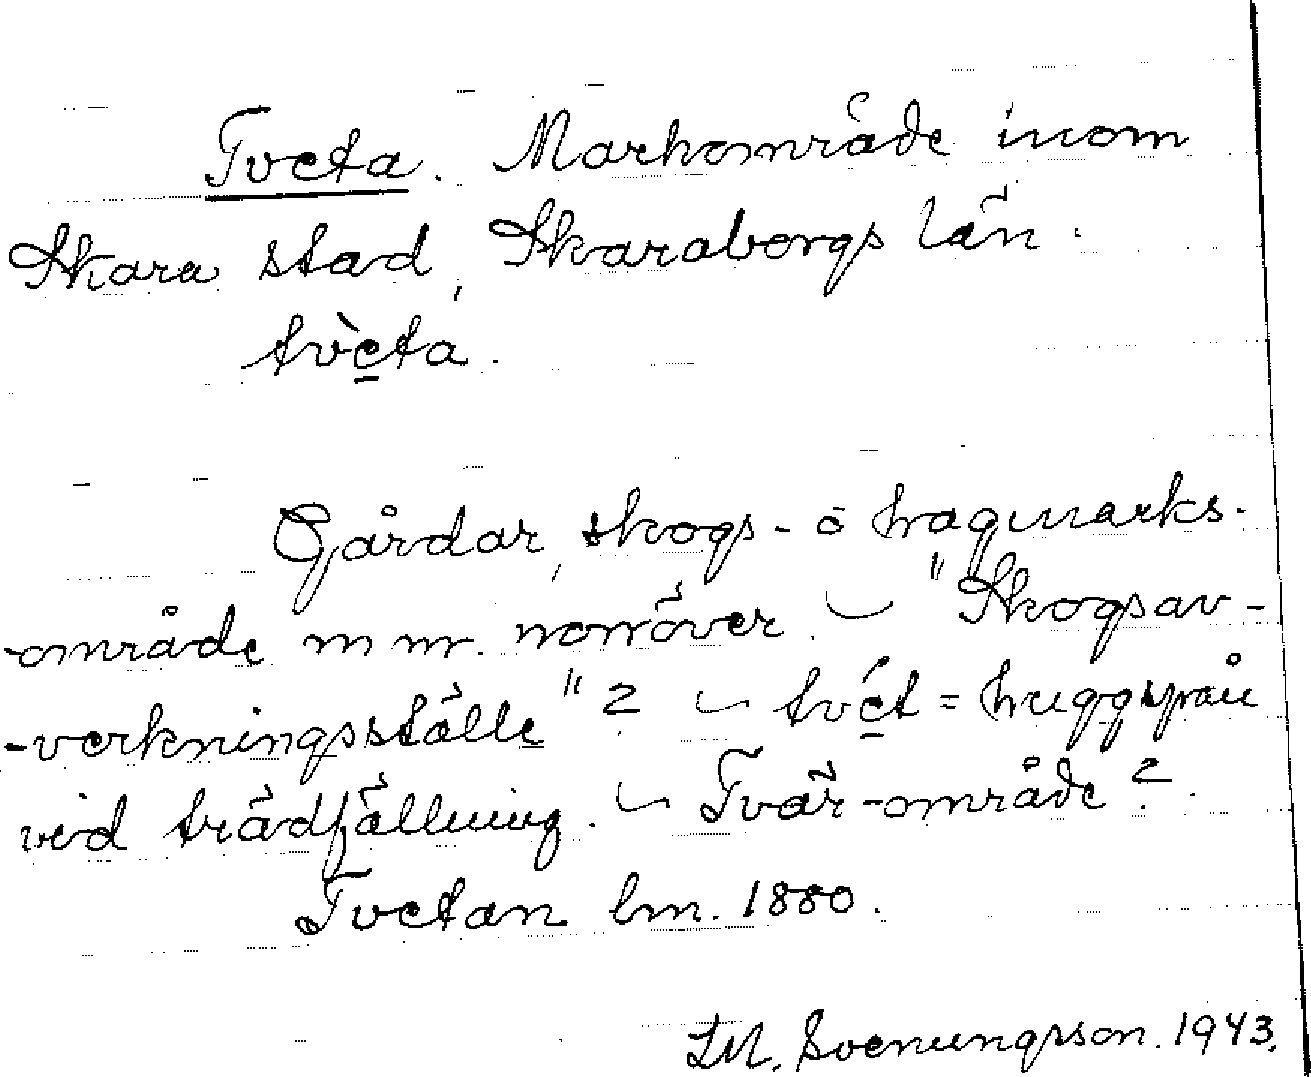 Tveta. Markområde inom
Skara stad, Skaraborgs län.
tvèta.
Gårdar, skogs- o hagmarks-
område m m. norröver. "Skogsav-
-verkningsställe"? tvét = huggspån
vid trädfällning. Tvär-område?
Tvetan lm. 1880.
Svenungsson. 1943.